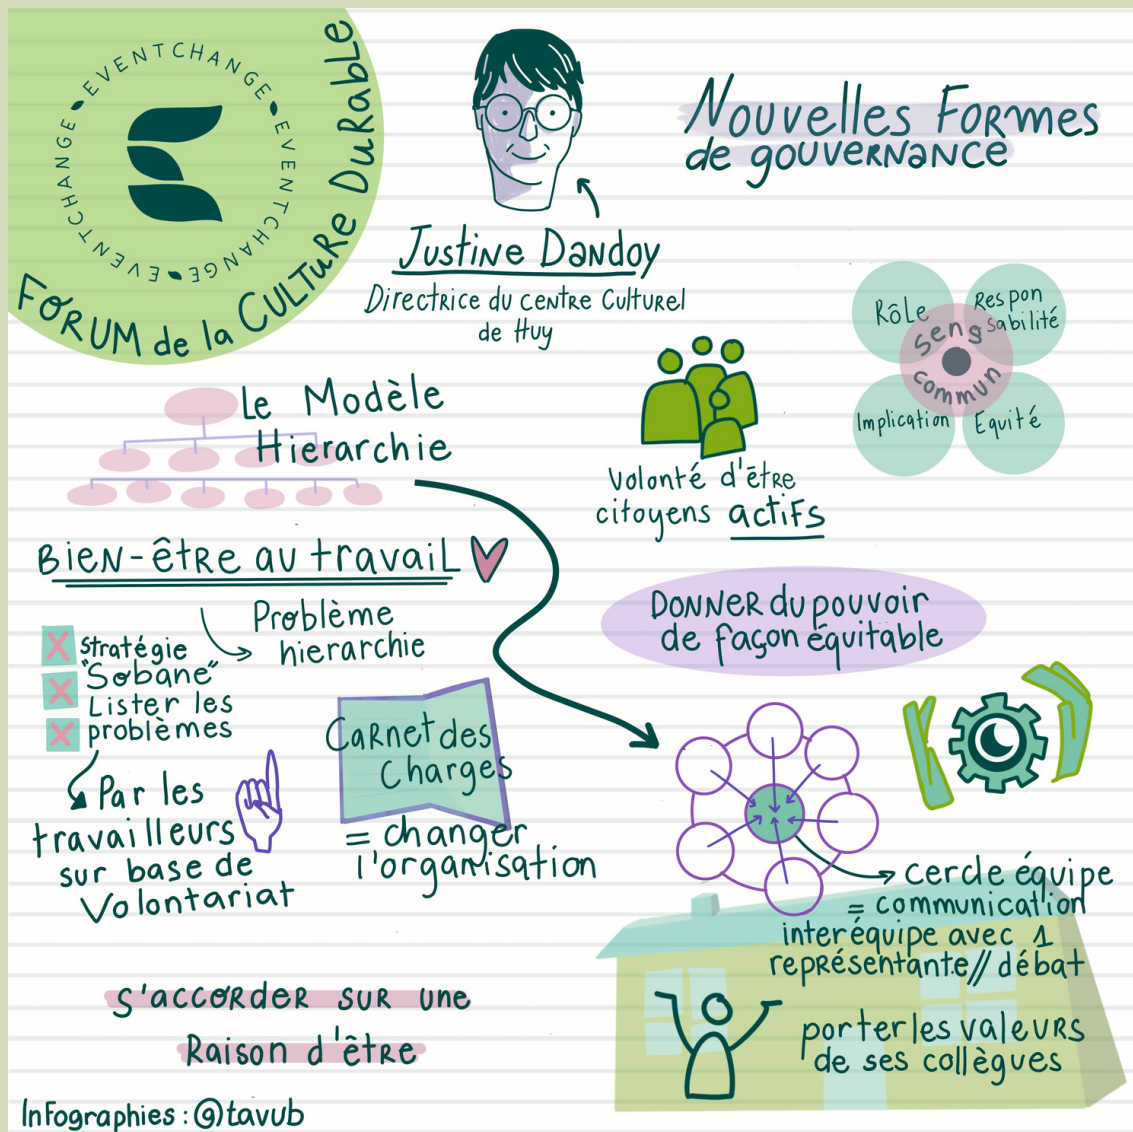 EVENTCHANGE
EVENTCHANGE
EVENTCHANGE
EVENTCHANGE
FORUM de la CULTURE DURable
Nouvelles Formes
de gouvernance
Justine Dandoy
Directrice du centre Culturel
de Huy
Rôle
Respon
sabilité
Seng
commun
Implication
Equité
Le Modèle
Hierarchie
Volonté d'être
citoyens actifs
Bien-être au travail
Problème
hierarchie
Stratégie
"Sobane"
Lister les
problèmes
Par les
travailleurs
sur base de
Volontariat
Carnet des
Charges
= changer
l'organisation
Donner du pouvoir
de façon équitable
cercle équipe
= communication
inter équipe avec 1
représentante// débat
porter les valeurs
de ses collègues
S'accorder sur une
Raison d'être
Infographies : @tavub